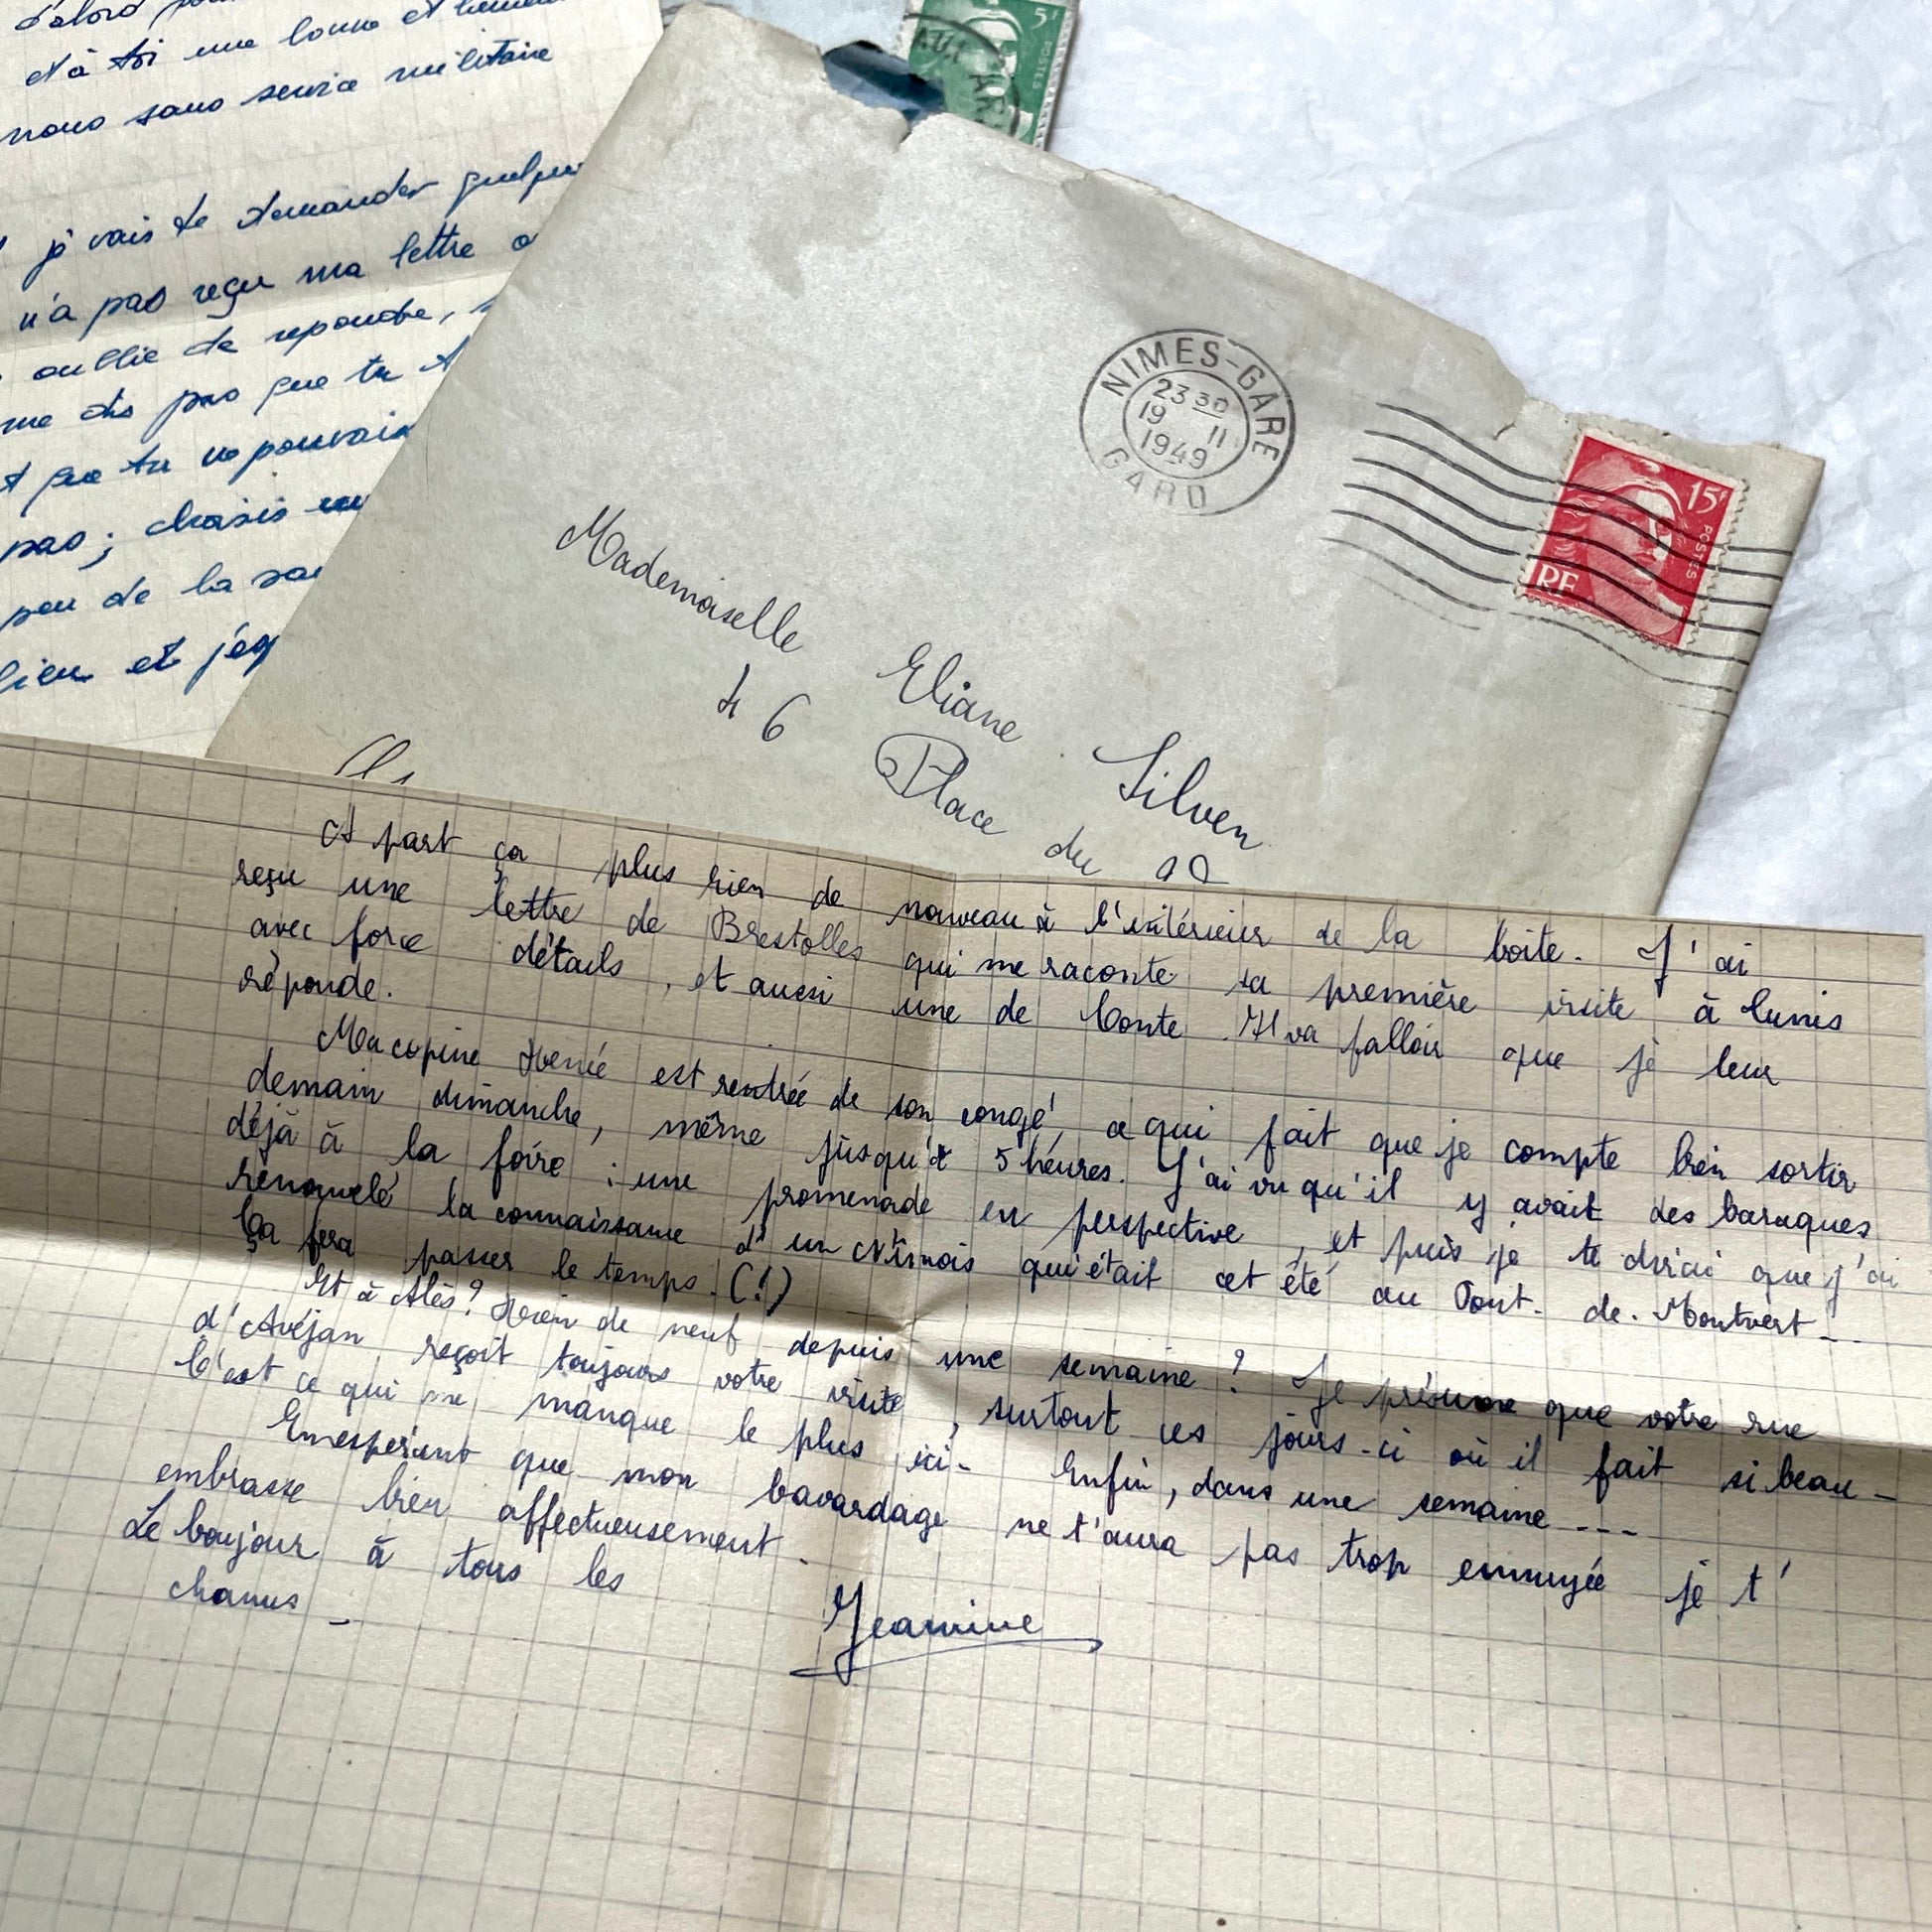 et à toi une bonne et
nous sans service militaire
je vais te demander
n'a pas reçu ma lettre
oublié de repondre,
me dis pas que tu
que tu ne pouvais
pas; choisis
peu de la
et
5F
POSTES
NIMES-GARE
23 30
19 11
1949
GARD
15F
POSTES
RF
Mademoiselle Eliane Silven
46 Place du
A part ça plus rien de nouveau à l'extérieur de la boite. J'ai
reçu une lettre de Brestolles qui me raconte sa première visite à Lunis
avec force détails, et aussi une de Conte. Il va falloir que je leur
réponde.
Ma copine Renée est rentrée de son congé, ce qui fait que je compte bien sortir
demain dimanche, même jusqu'à 5 heures. J'ai vu qu'il y avait des baraques
déjà à la foire : une promenade en perspective, et puis je te dirai que j'ai
renouvelé la connaissance d'un Nîmois qui était cet été au Pont-de-Montvert...
Ça fera passer le temps. (!)
Et à Alès? Rien de neuf depuis une semaine? Je présume que votre rue
d'Avéjan reçoit toujours votre visite, surtout ces jours-ci où il fait si beau -
C'est ce qui me manque le plus ici - Enfin, dans une semaine ---
En espérant que mon bavardage ne t'aura pas trop ennuyée je t'
embrasse bien affectueusement.
Le boujour à tous les
chanus -
Jeannine